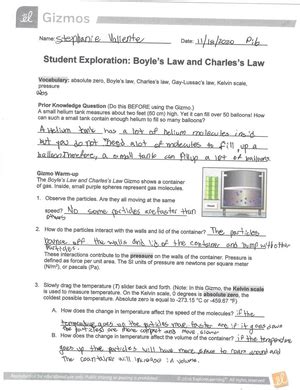 el Gizmos
Name: Stephanie Valiente Date: 11/18/2020 P.6
Student Exploration: Boyle's Law and Charles's Law
Vocabulary: absolute zero, Boyle's law, Charles's law, Gay-Lussac's law, Kelvin scale,
pressure
Prior Knowledge Question (Do this BEFORE using the Gizmo.)
A small helium tank measures about two feet (60 cm) high. Yet it can fill over 50 balloons! How
can such a small tank contain enough helium to fill so many balloons?
A helium tank has a lot of helium molecules
but you do not need alot of molecules to fill up a
balloon. Therefore, a small tank can fill up a lot of balloons
Gizmo Warm-up
The Boyle's Law and Charles's Law Gizmo shows a container
of gas. Inside, small purple spheres represent gas molecules.
1. Observe the particles. Are they all moving at the same
speed? No some particles are faster than
others
2. How do the particles interact with the walls and lid of the container? The particles
bounce off the walls and lid of the container and bump with other
particles.
These interactions contribute to the pressure on the walls of the container. Pressure is
defined as force per unit area. The SI units of pressure are newtons per square meter
(N/m²), or pascals (Pa).
3. Slowly drag the temperature (T) slider back and forth. (Note: In this Gizmo, the Kelvin scale
is used to measure temperature. On the Kelvin scale, 0 degrees is absolute zero, the
coldest possible temperature. Absolute zero is equal to -273.15 °C or -459.67 °F)
A. How does the change in temperature affect the speed of the molecules? if the
temperature goes up the particles move faster and if it goes down
the particles are more compact and move slower
B. How does the change in temperature affect the volume of the container? if the temperature
goes up the particles will have more space to roam around and
the container will increase in volume.